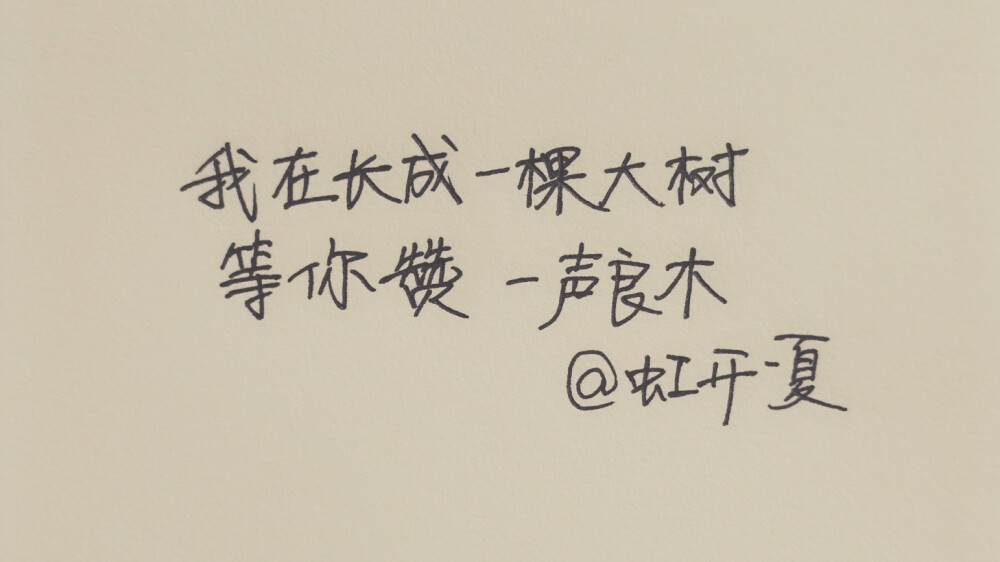 我在长成一棵大树
等你赞一声良木
@虹开夏